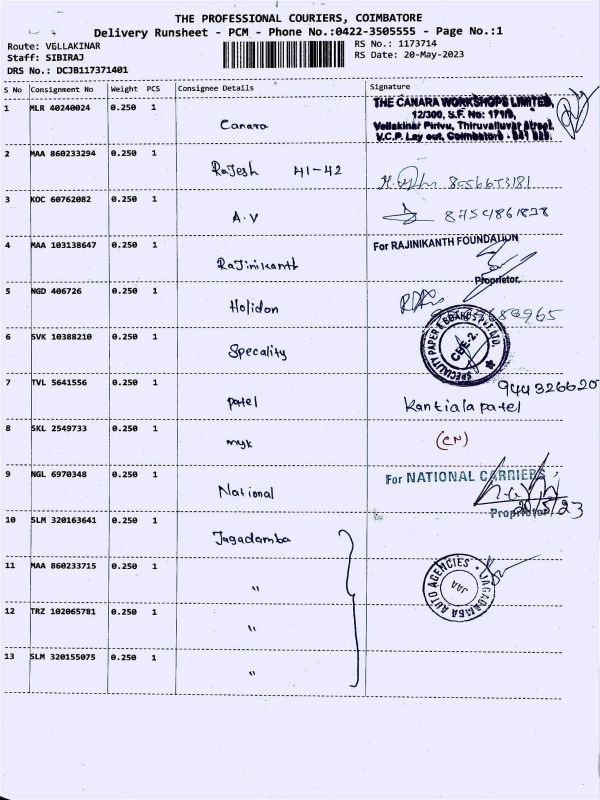 THE PROFESSIONAL COURIERS, COIMBATORE
Delivery Runsheet - PCM - Phone No.:0422-3505555 - Page No.:1
Route: VELLAKINAR
RS No.: 1173714
Staff: SIBIRAJ
RS Date: 20-May-2023
DRS No.: DCJB117371401
S No Consignment No Weight PCS Consignee Details Signature
1 MLR 40240024 0.250 1 Canara
THE CANARA WORKSHOPS LIMITED,
12/300, S.F. No: 171/B,
Vellakinar Pirivu, Thiruvalluvar Street,
V.C.P. Lay out, Coimbatore - 641 029.
2 MAA 860233294 0.250 1 Rajesh 41-42
8056673181
3 KOC 60762082 0.250 1 A.V
8754861828
4 MAA 103138647 0.250 1 Rajinikanth
For RAJINIKANTH FOUNDATION
Proprietor.
5 NGD 406726 0.250 1 Holidon
6 SVK 10388210 0.250 1 Specality
SPECIALITY PAPER & BOARDS PVT. LTD.
CBE-2.
7 TVL 5641556 0.250 1 patel
944326620
Kantiala patel
8 SKL 2549733 0.250 1 myk
(CN)
9 NGL 6970348 0.250 1 National
For NATIONAL CARRIERS
Proprietor
20/5/23
10 SLM 320163641 0.250 1 Jagadamba
11 MAA 860233715 0.250 1 "
JAGADAMBA AUTO AGENCIES
JAA
12 TRZ 102065781 0.250 1 "
13 SLM 320155075 0.250 1 "